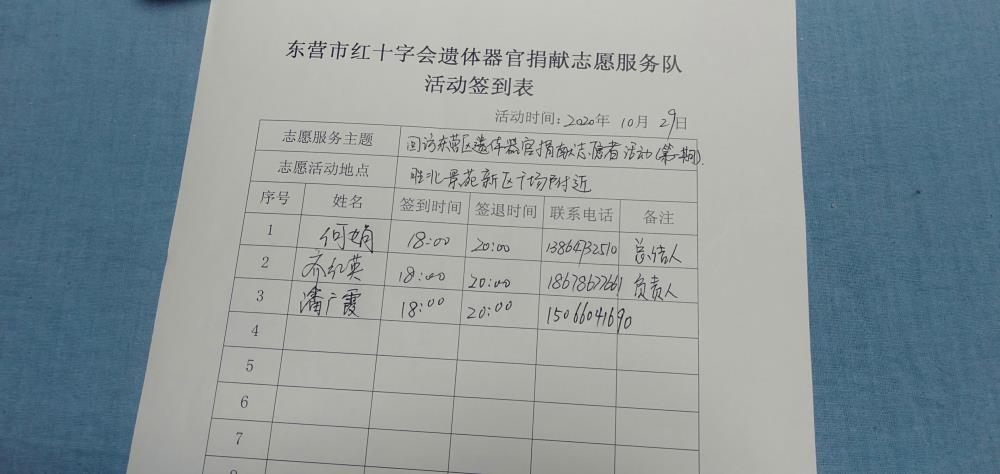 东营市红十字会遗体器官捐献志愿服务队
活动签到表
活动时间:2020年 10月 29日
志愿服务主题 回访东营区遗体器官捐献志愿者活动(第一期).
志愿活动地点 胜北景苑新区广场附近
序号 姓名 签到时间 签退时间 联系电话 备注
1 何娟 18:00 20:00 13864732510 总结人
2 齐红英 18:00 20:00 18678677661 负责人
3 潘广霞 18:00 20:00 15066041690
4
5
6
7